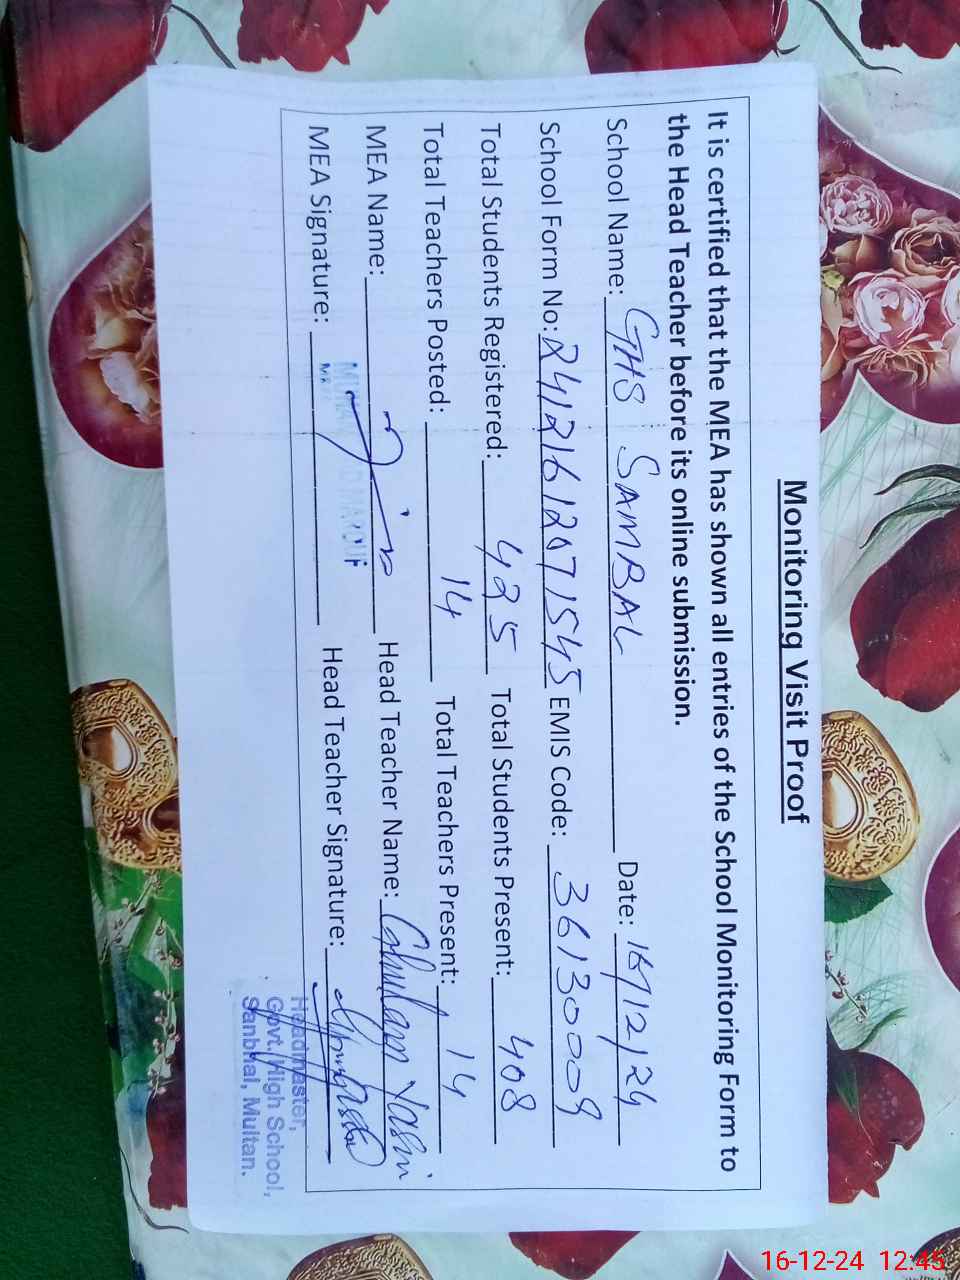 Monitoring Visit Proof
It is certified that the MEA has shown all entries of the School Monitoring Form to
the Head Teacher before its online submission.
School Name: GHS SAMBAL Date: 16/12/24
School Form No: 24121612071545 EMIS Code: 36130009
Total Students Registered: 425 Total Students Present: 408
Total Teachers Posted: 14 Total Teachers Present: 14
MEA Name: Head Teacher Name: Ghulam Yasin
MEA Signature: Head Teacher Signature:
Headmaster,
Govt. High School,
Sanbhal, Multan.
16-12-24 12:45